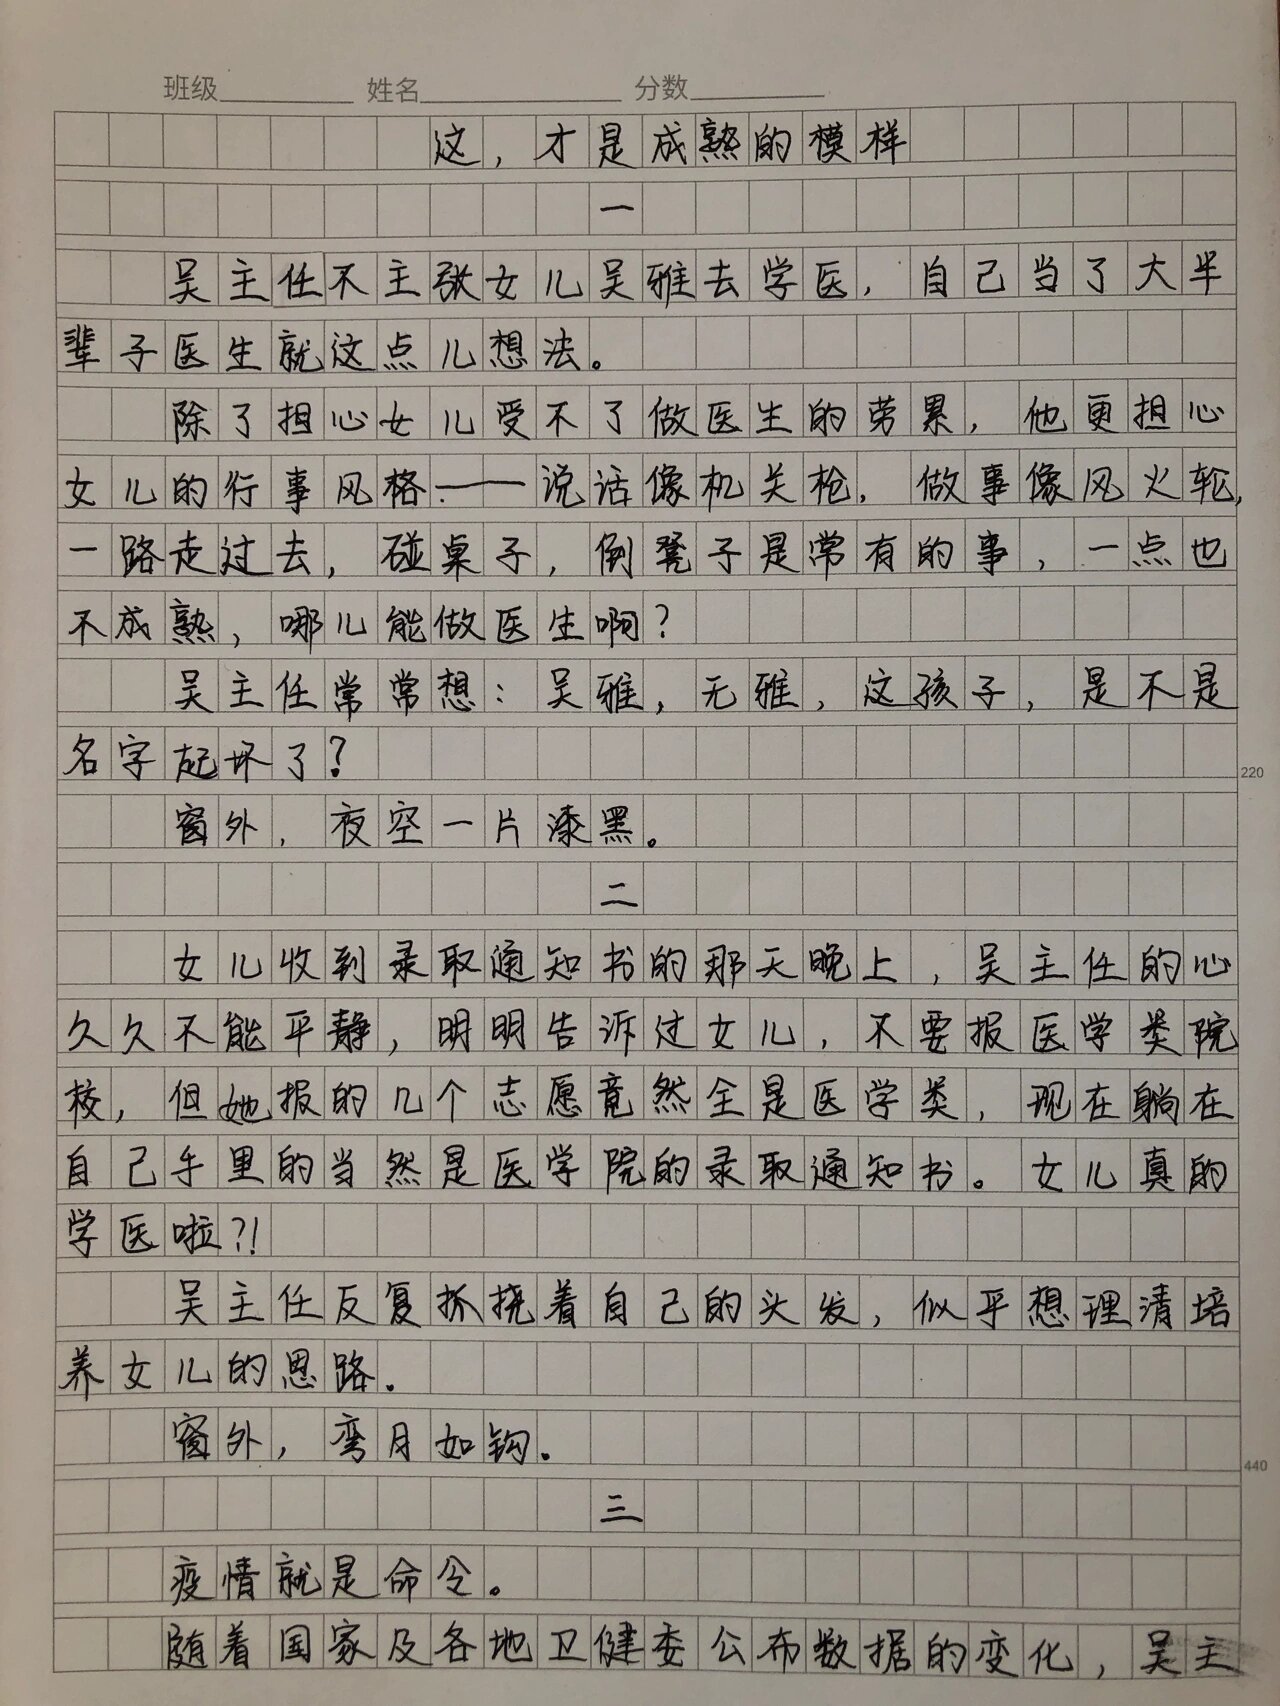 班级 姓名 分数
这，才是成熟的模样
一
吴主任不主张女儿吴雅去学医，自己当了大半
辈子医生就这点儿想法。
除了担心女儿受不了做医生的劳累，他更担心
女儿的行事风格——说话像机关枪，做事像风火轮，
一路走过去，碰桌子，倒凳子是常有的事，一点也
不成熟，哪儿能做医生啊？
吴主任常常想：吴雅，无雅，这孩子，是不是
名字起坏了？
220
窗外，夜空一片漆黑。
二
女儿收到录取通知书的那天晚上，吴主任的心
久久不能平静，明明告诉过女儿，不要报医学类院
校，但她报的几个志愿竟然全是医学类，现在躺在
自己手里的当然是医学院的录取通知书。女儿真的
学医啦？！
吴主任反复抓挠着自己的头发，似乎想理清培
养女儿的思路。
窗外，弯月如钩。
440
三
疫情就是命令。
随着国家及各地卫健委公布数据的变化，吴主